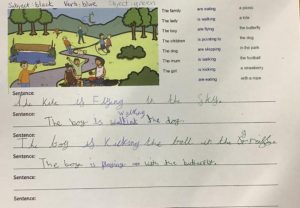 Subject: black Verb: blue Object: green
The family are eating a pizza
The lady is walking a kite
The boy are flying the butterfly
The children is pointing to the dog
The dog are skipping in the park
The mum is kicking the football
The girl is a strawberry
are eating with a rope
Sentence:
The kite is Flying in the Sky.
Sentence:
walking
The boy is the dog.
Sentence:
The boy is Kicking the ball in the
Sentence:
The boy is playing with the butterfly.
Sentence: